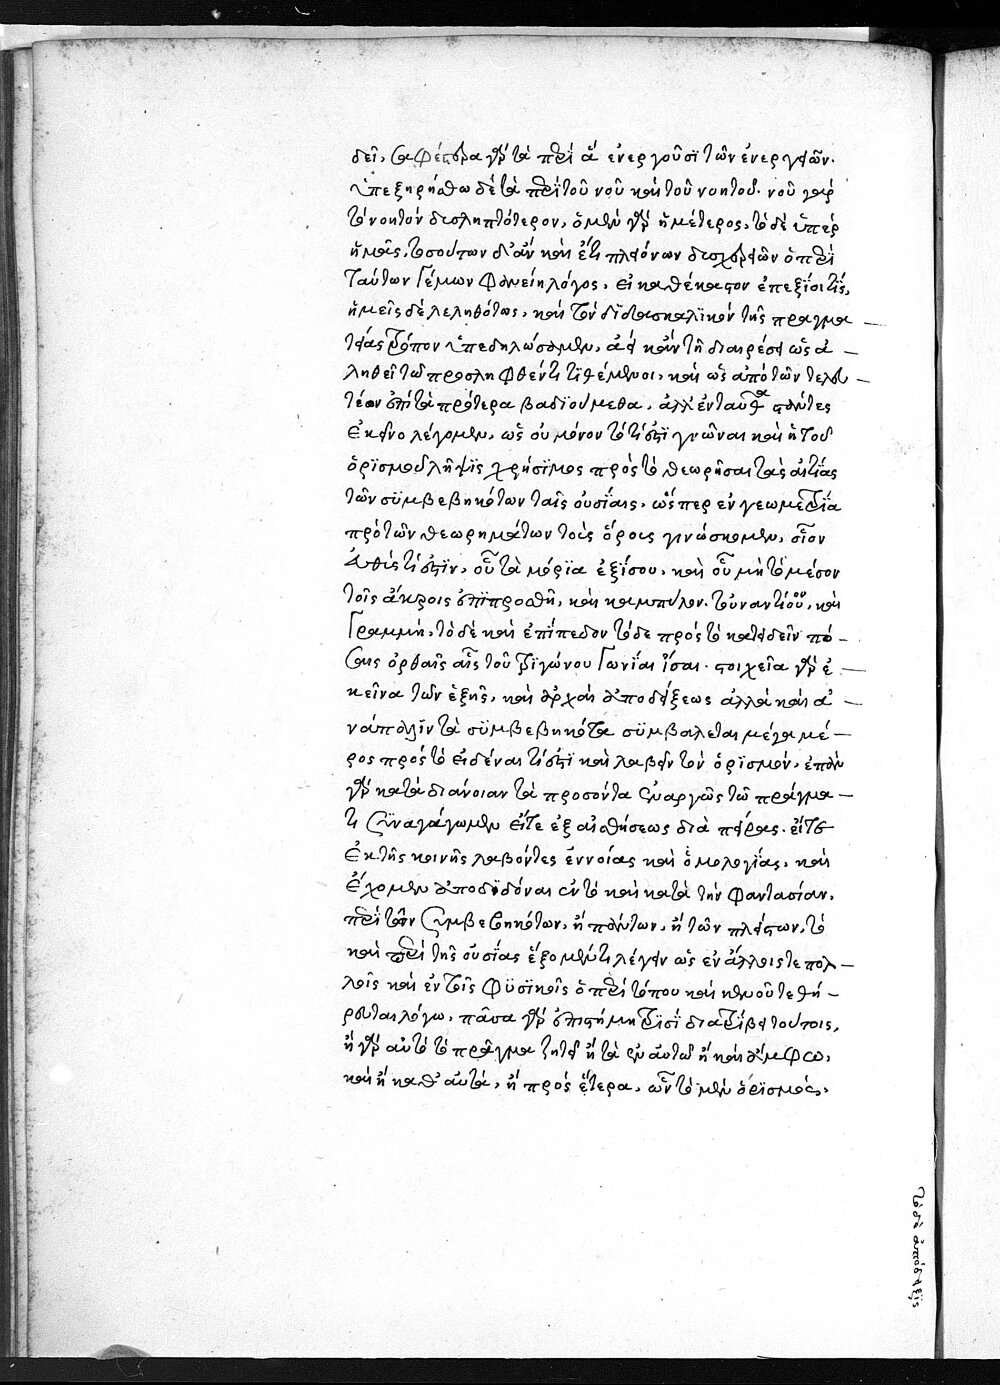 δεῖ, σαφέστερα γὰρ τὰ περὶ ἃ ἐνεργοῦσι τῶν ἐνεργειῶν.
ὑπεξῃρήσθω δὲ τὰ περὶ τοῦ νοῦ καὶ τοῦ νοητοῦ. νοῦ γὰρ
τὸ νοητὸν δυσληπτότερον, ὁ μὲν γὰρ ἡμέτερος, τὸ δὲ ὑπὲρ
ἡμᾶς, τοσούτων δ' ἂν καὶ ἔτι πλειόνων δυσχερειῶν ὁ περὶ
τούτων γέμων φανείη λόγος, εἰ καθέκαστον ἐπεξίοι τίς,
ἡμεῖς δὲ λεληθότως, καὶ τὸν διδασκαλικὸν τῆς πραγμα
τείας τρόπον ὑπεδηλώσαμεν, ἀεὶ κἂν τῇ διαιρέσει ὡς ἀ
ληθεῖ τῷ προσληφθέντι τιθέμενοι, καὶ ὡς ἀπὸ τῶν τελευ
ταίων ἐπὶ τὰ πρότερα βαδιούμεθα, ἀλλ' ἐνταῦθα στάντες
ἐκεῖνο λέγομεν, ὡς οὐ μόνον τὸ τί ἐστι γνῶναι καὶ ἡ τοῦ
ὁρισμοῦ λῆψις χρήσιμος πρὸς τὸ θεωρῆσαι τὰς αἰτίας
τῶν συμβεβηκότων ταῖς οὐσίαις, ὥσπερ ἐν γεωμετρίᾳ
πρὸ τῶν θεωρημάτων τοὺς ὅρους γινώσκομεν, οἷον
εὐθὺς τί ἐστιν, οὗ τὰ μόρια ἐξίσου, καὶ οὗ μὴ τὸ μέσον
τοῖς ἄκροις ἐπιπροσθῇ, καὶ καμπύλον. τοὐναντίον, καὶ
γραμμὴ, τὸ δὲ καὶ ἐπίπεδον τὸδε πρὸς τὸ κατιδεῖν πό
σαις ὀρθαῖς αἱ τοῦ τριγώνου γωνίαι ἴσαι. στοιχεῖα γὰρ ἐ
κεῖνα τῶν ἑξῆς, καὶ ἀρχαὶ ἀποδείξεως ἀλλὰ καὶ ἀ
νάπαλιν τὰ συμβεβηκότα συμβάλεται μέγα μέ
ρος πρὸς τὸ εἰδέναι τί ἐστι καὶ λαβεῖν τὸν ὁρισμόν, ἐπὰν
γὰρ κατὰ διάνοιαν τὰ προσόντα ἐναργῶς τῷ πράγμα
τι συναγάγωμεν εἴτε ἐξ αἰσθήσεως διὰ πείρας. εἴτε
ἐκ τῆς κοινῆς λαβόντες ἐννοίας καὶ ὁμολογίας, καὶ
ἔχομεν ἀποδιδόναι ἐν τὸ καὶ κατὰ τὴν φαντασίαν,
περὶ τῶν συμβεβηκότων, ἢ πάντων, ἢ τῶν πλείστων, τὸ
καὶ περὶ τῆς οὐσίας ἕξομέν τι λέγειν ὡς ἐν ἄλλοις τε πολ
λοῖς καὶ ἐν τοῖς φυσικοῖς ὁ περὶ τόπου καὶ κενοῦ τεθή
ρευται λόγῳ, πᾶσα γὰρ ἐπιστήμη τρισὶ διατρίβει τούτοις,
ἢ γὰρ αὐτὸ τὸ πρᾶγμα ζητεῖ ἢ τὰ ἐν αὐτῷ ἢ καὶ ἄμφω,
καὶ ἢ καθ' αὑτὰ, ἢ πρὸς ἕτερα, ὧν τὸ μὲν ὁρισμὸς,
τὸ δὲ ἀπόδειξις